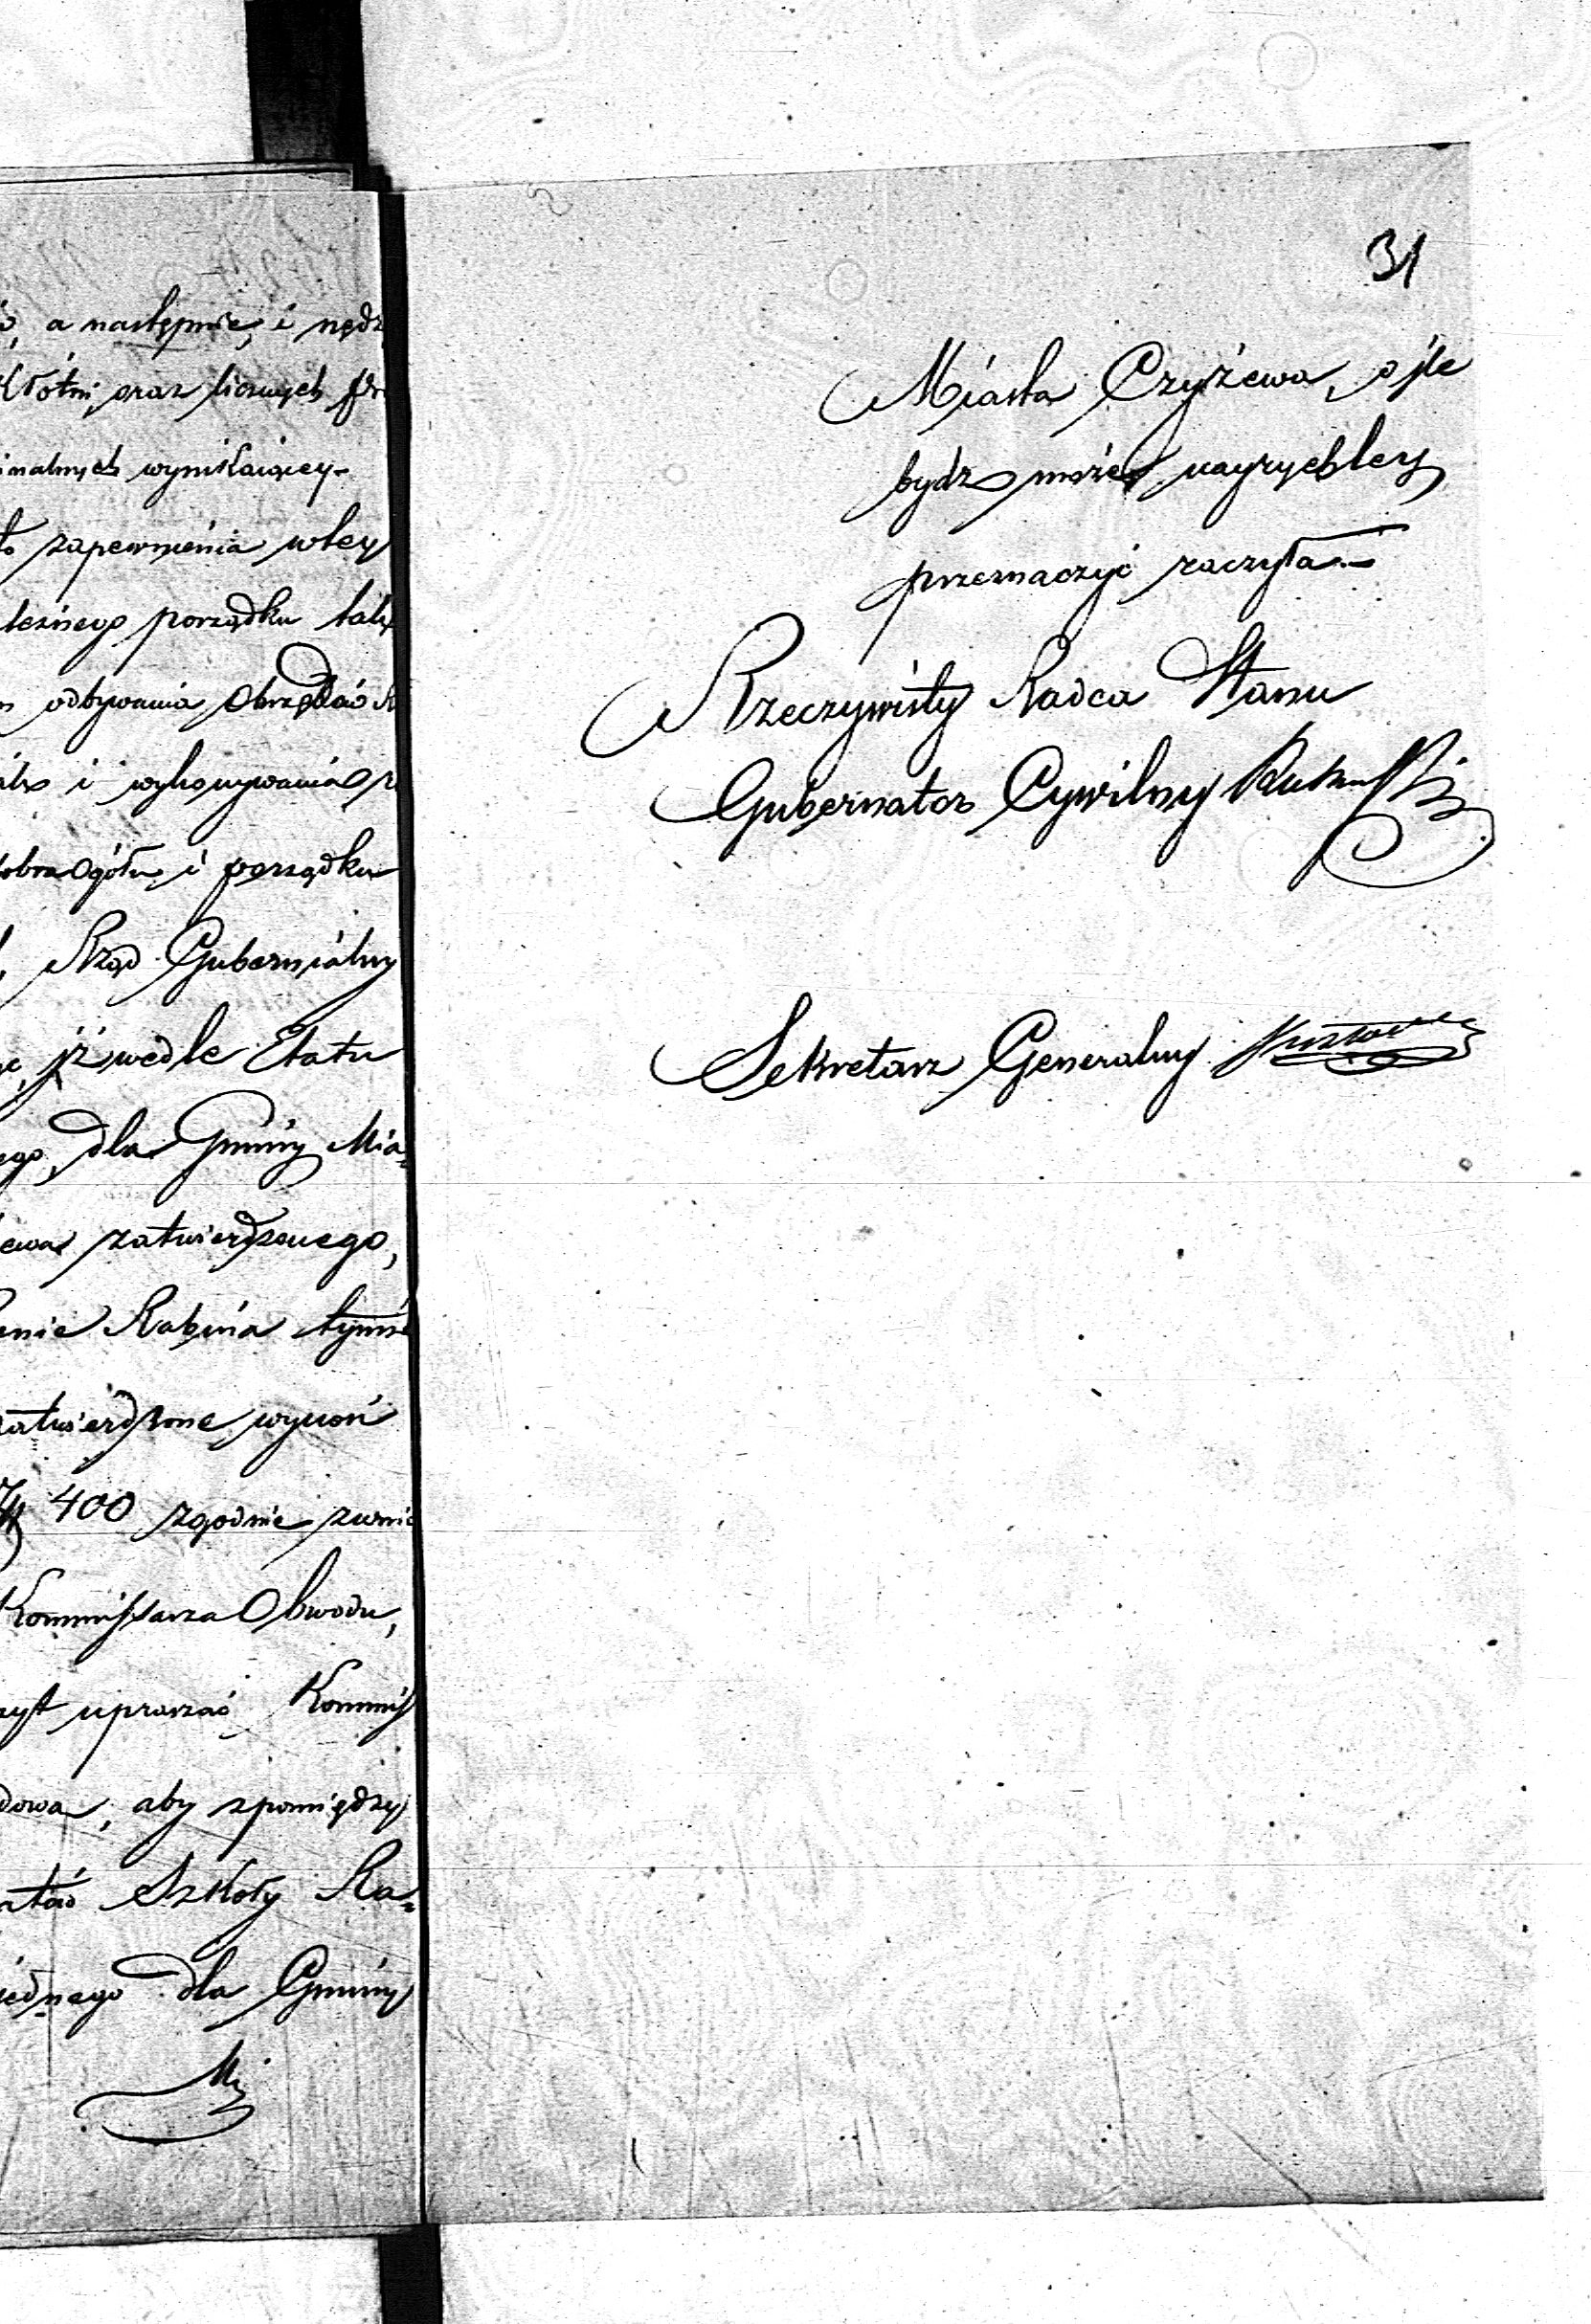 a następnie, i nędz
Kłótni, oraz licznych
inalnych wynikaiącey
zapewnienia w tey
porządku
odbywania Obrzędów
i wykonywania
dobra Ogółu, i porządku
Rząd Gubernialny
iż wedle Etatu
ego, dla Gminy Mia=
ewa zatwierdzonego,
enie Rabina
zatwierdzone, wynosi
400 zgodnie z wnio
Kommissarza Obwodu,
upraszać Kommis
dowa, aby z pomiędzy
Szkoły Ra=
iednego dla Gminy
Mi
31
Miasta Czyżewa, o ile
bydz może nayrychley
przeznaczyć raczyła.
Rzeczywisty Radca Stanu
Gubernator Cywilny
Sekretarz Generalny